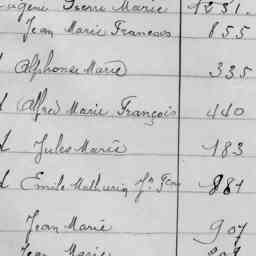 Eugène Pierre Marie 1231.
Jean Marie Francois 855
Alphonse Marie 335
Alfred Marie François 440
Jules Marie 183
Emile Mathurin Jn 881
Jean Marie 907
Jean Marie